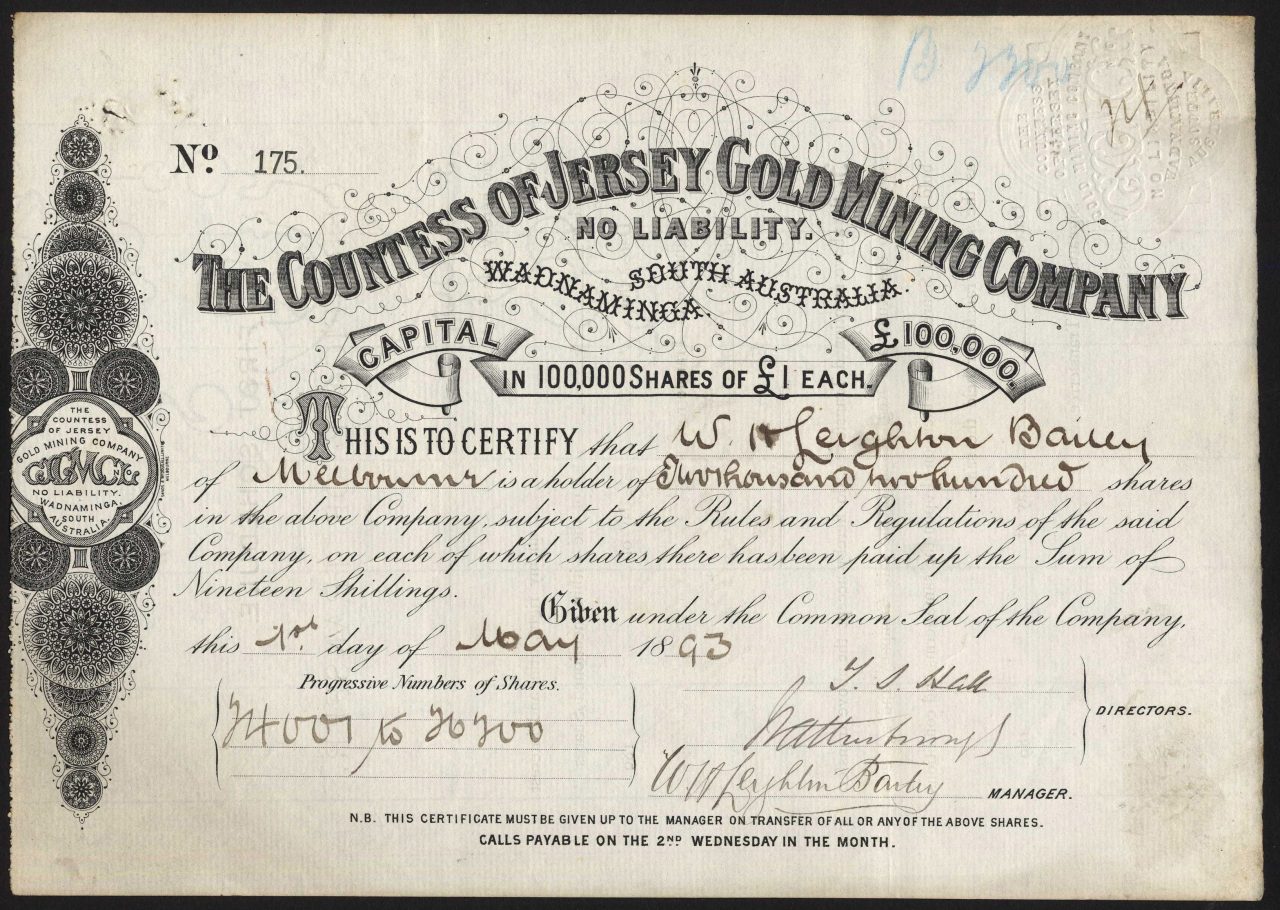 B 2200
No. 175.
THE COUNTESS OF JERSEY GOLD MINING COMPANY
NO LIABILITY.
WADNAMINGA. SOUTH AUSTRALIA.
CAPITAL £100,000.
IN 100,000 SHARES OF £1 EACH.
THIS IS TO CERTIFY that W. H Leighton Bailey
of Melbourne is a holder of Two thousand two hundred shares
in the above Company, subject to the Rules and Regulations of the said
Company, on each of which shares there has been paid up the Sum of
Nineteen Shillings.
Given under the Common Seal of the Company,
this 1st day of May 1893
Progressive Numbers of Shares.
24001 to 26200
T. S. Hall
DIRECTORS.
W H Leighton Bailey MANAGER.
N.B. THIS CERTIFICATE MUST BE GIVEN UP TO THE MANAGER ON TRANSFER OF ALL OR ANY OF THE ABOVE SHARES.
CALLS PAYABLE ON THE 2ND WEDNESDAY IN THE MONTH.
THE
COUNTESS
OF JERSEY
GOLD MINING COMPANY
CJGMCo
NO LIABILITY.
WADNAMINGA.
SOUTH
AUSTRALIA.